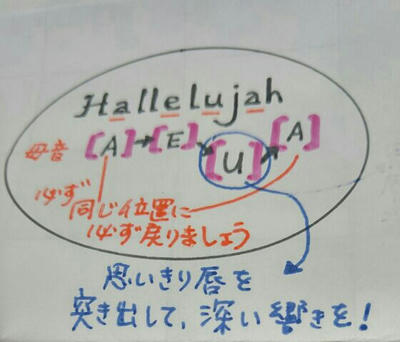 Hallelujah
母音 [A]→[E]→[U]→[A]
必ず
同じ位置に
必ず戻りましょう
思いきり唇を
突き出して、深い響きを!